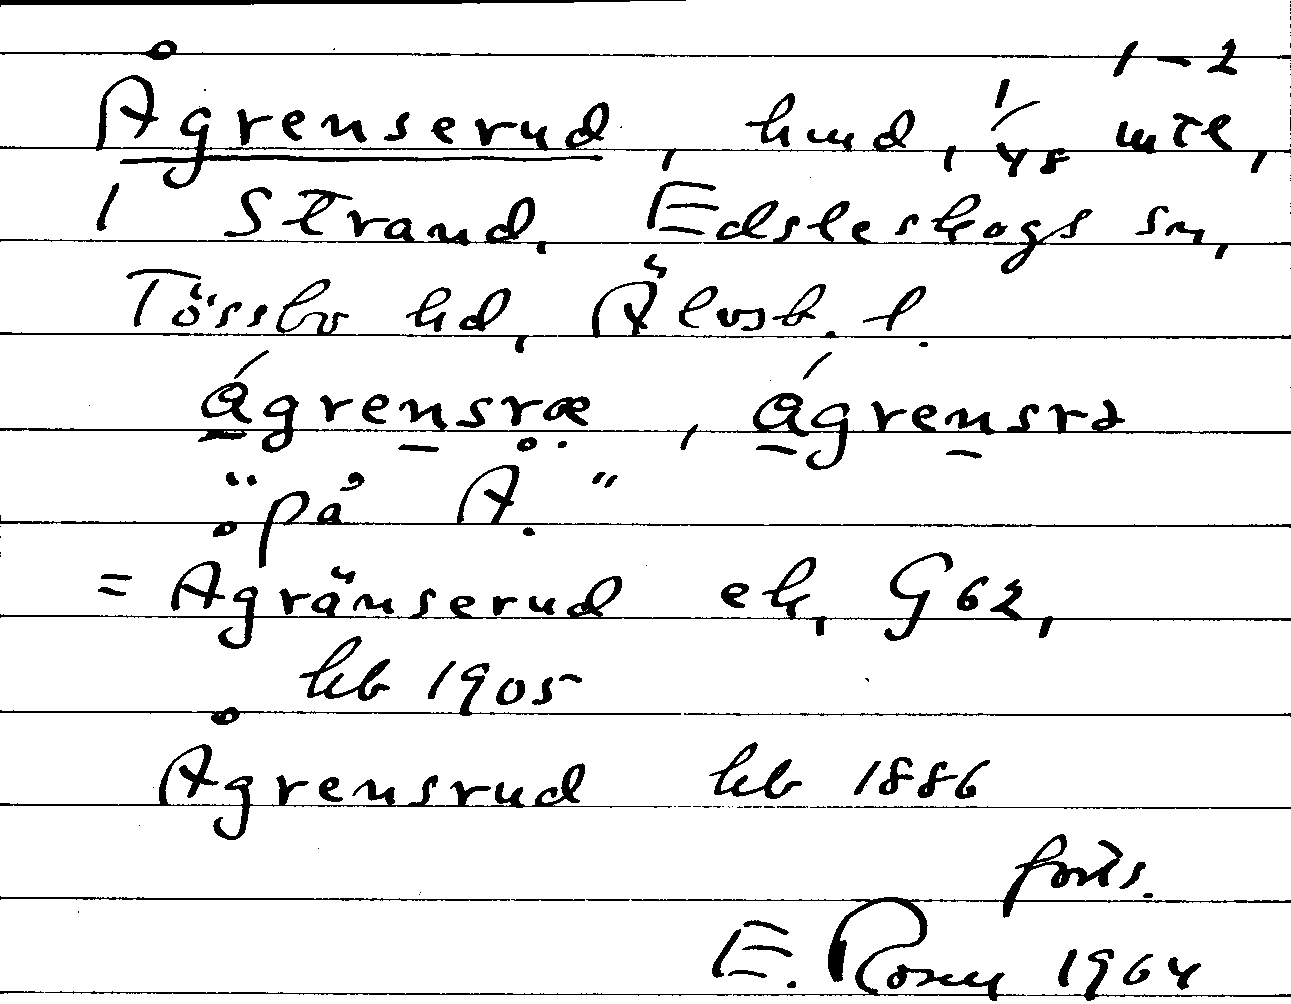 1-2
Ågrenserud, hmd, 1/48 mtl,
i Strand, Edsleskogs sn,
Tössbo hd, Älvsb. l.
ágrensræ, ágrensrə
"på Å."
= Ågränserud ek, G62,
hb 1905
Ågrensrud hb 1886
forts.
E. Rosell 1964